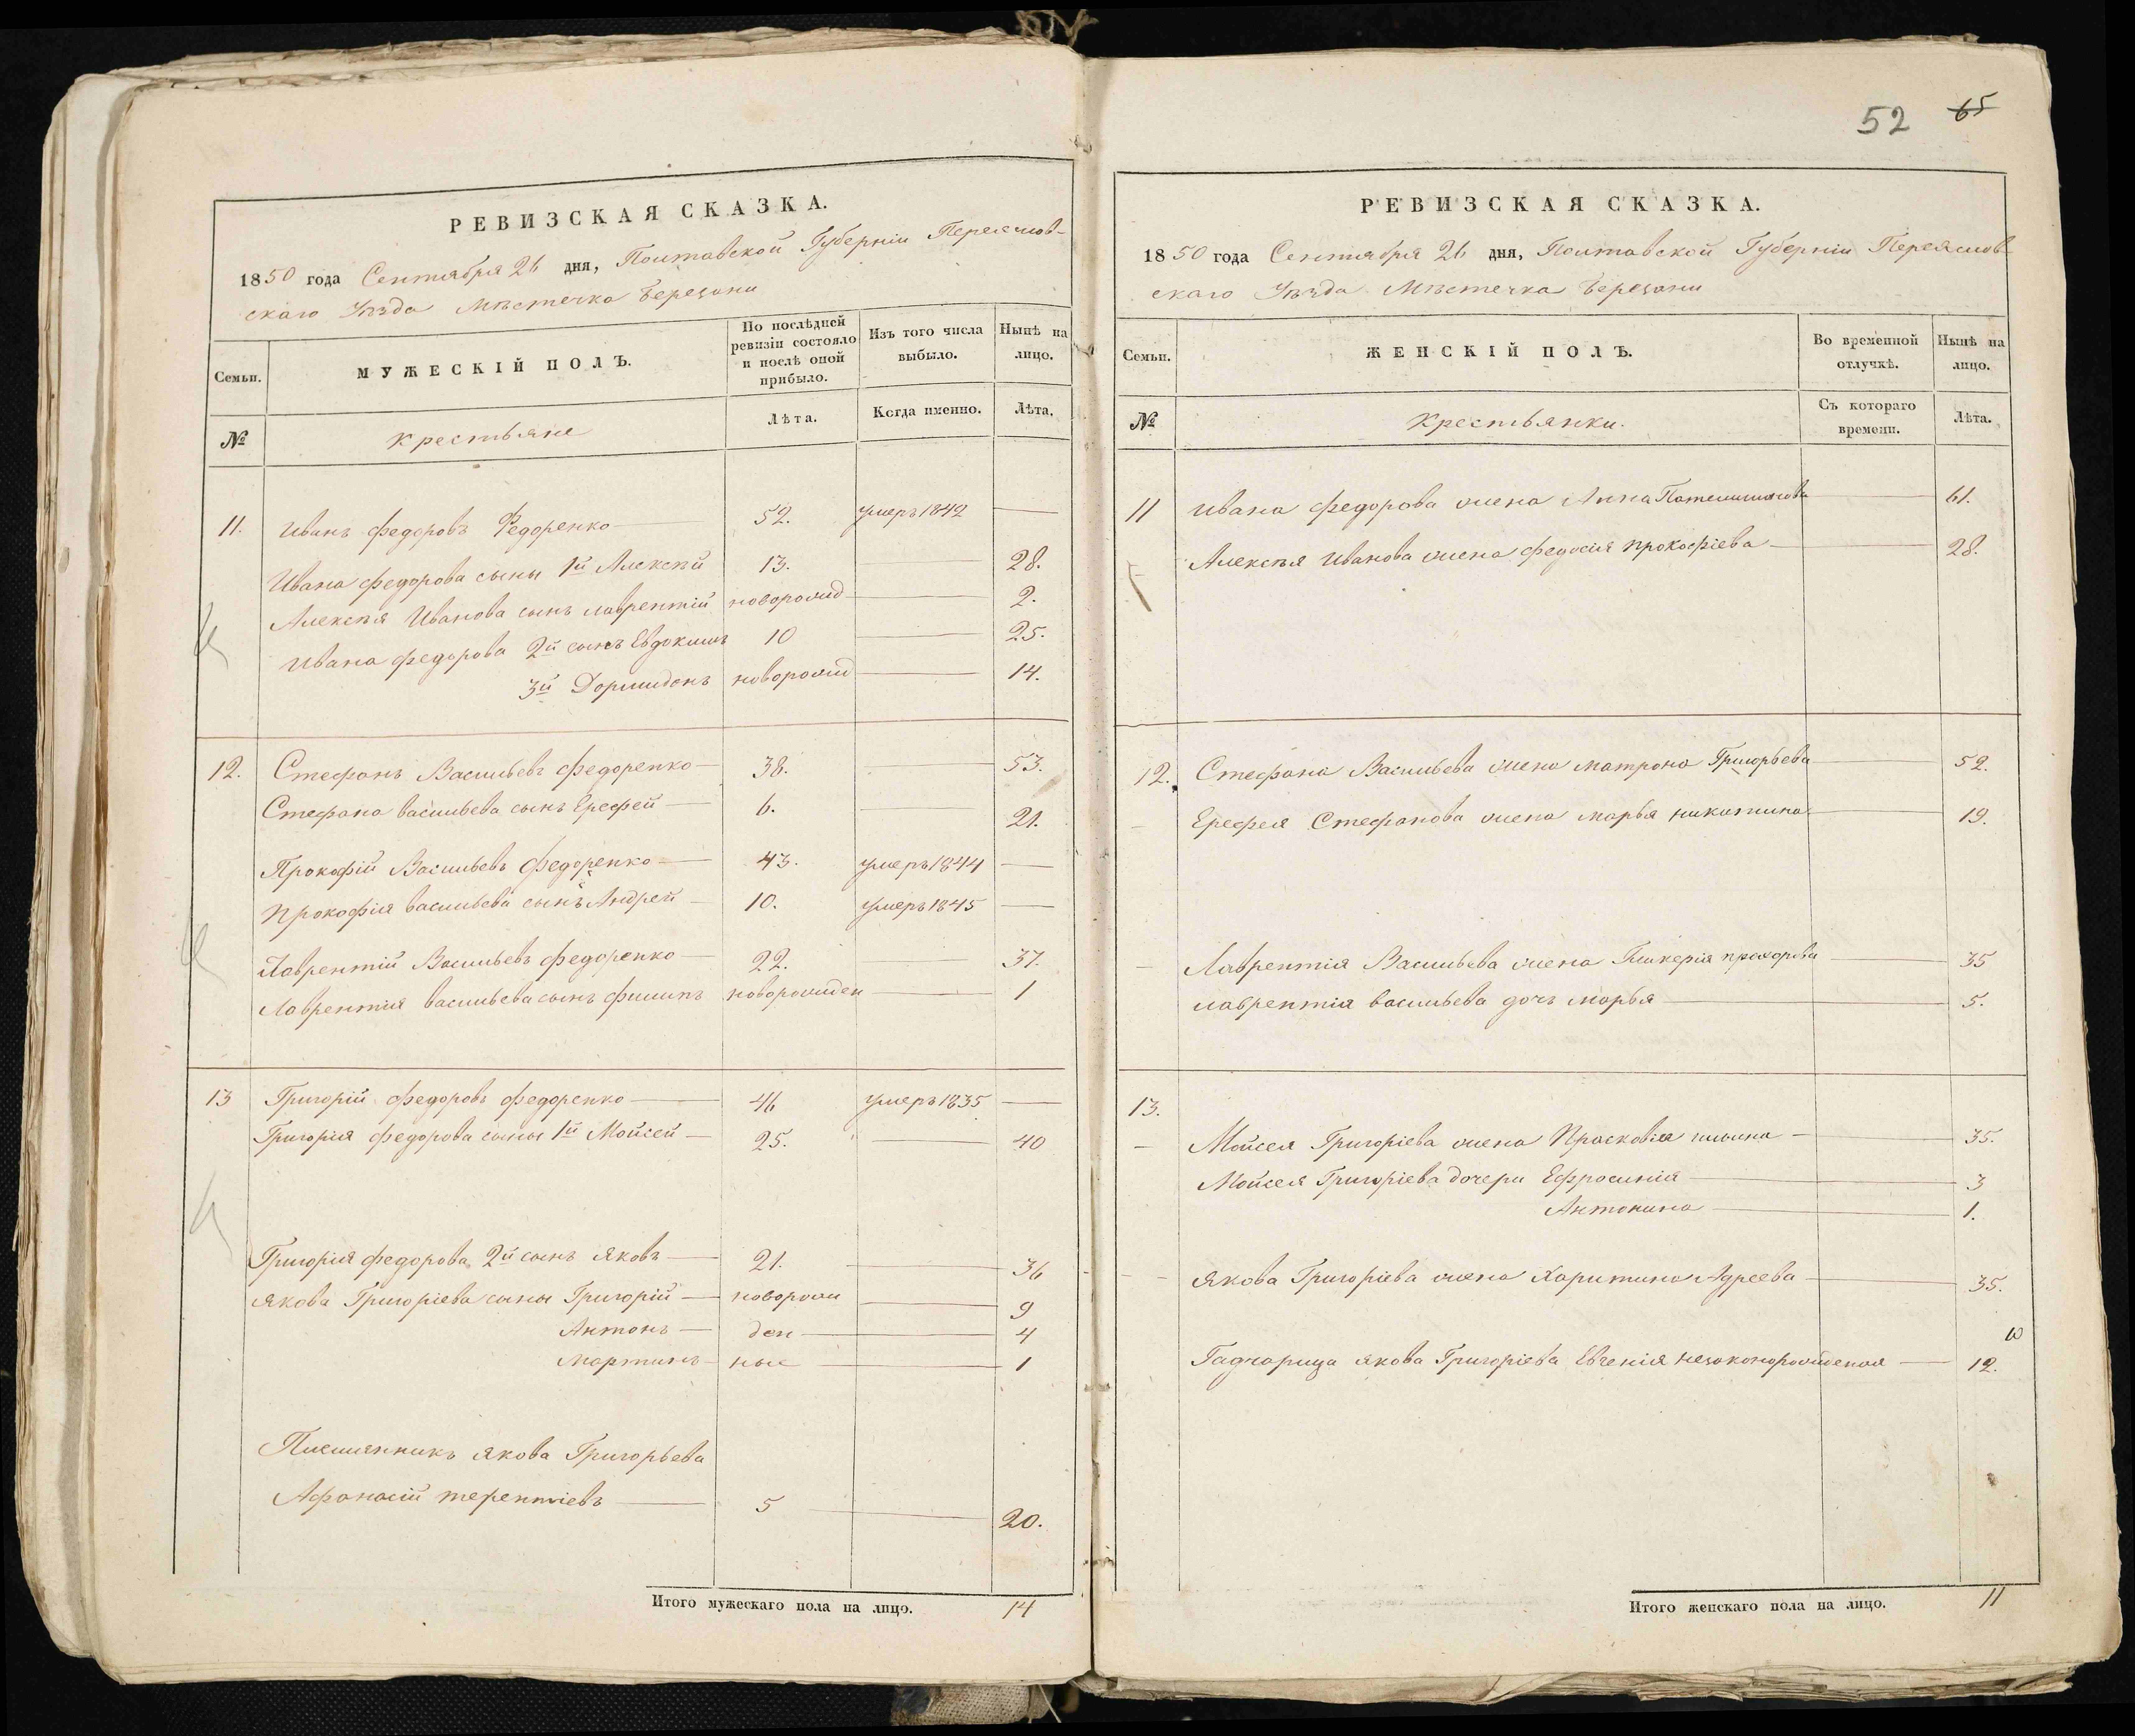 РЕВИЗСКАЯ СКАЗКА.
1850 года Сентября 26 дня, Полтавской Губерніи Переяслов-
скаго Уѣзда Мѣстечка Березани
Семьи.
МУЖЕСКІЙ ПОЛЪ.
По послѣдней ревизіи состояло и послѣ оной прибыло.
Изъ того числа выбыло.
Нынѣ на лицо.
№
Крестьяне
Лѣта.
Когда именно.
Лѣта.
11. Иванъ Федоровъ Федоренко 52. умеръ 1842
Ивана Федорова сыны 1й Алексѣй 13. 28.
Алексѣя Иванова сынъ Лаврентій новорожд 2.
Ивана Федорова 2й сынъ Евдокимъ 10 25.
3й Дормидонъ новорожд 14.
12. Стефанъ Васильевъ Федоренко 38. 53.
Стефана Васильева сынъ Ерефей 6. 21.
Прокофій Васильевъ Федоренко 43. умеръ 1844
Прокофія Васильева сынъ Андрей 10. умеръ 1845
Лаврентій Васильевъ Федоренко 22. 37.
Лаврентія Васильева сынъ Филипъ новорожден 1
13 Григорій Федоровъ Федоренко 46 умеръ 1835
Григорія Федорова сыны 1й Мойсей 25. 40
Григорія Федорова 2й сынъ Яковъ 21. 36
Якова Григоріева сыны Григорій новорож 9
Антонъ ден 4
Мартинъ ные 1
Племянникъ Якова Григорьева
Афанасій Терентіевъ 5 20.
Итого мужескаго пола на лицо. 14
52 65
РЕВИЗСКАЯ СКАЗКА.
1850 года Сентября 26 дня, Полтавской Губерніи Переяслов-
скаго Уѣзда Мѣстечка Березани
Семьи.
ЖЕНСКІЙ ПОЛЪ.
Во временной отлучкѣ.
Нынѣ на лицо.
№
Крестьянки.
Съ котораго времени.
Лѣта.
11 Ивана Федорова жена Анна 61.
Алексѣя Иванова жена Федосія Прокофіева 28.
12. Стефана Васильева жена Матрона Григорьева 52.
Ерефея Стефанова жена Марья Никитина 19.
Лаврентія Васильева жена Гликерія Прохорова 35
Лаврентія Васильева дочь Марья 5.
13.
Мойсея Григоріева жена Прасковія 35.
Мойсея Григоріева дочери Ефросинія 3
Антонина 1.
Якова Григоріева жена Харитина Адреева 35.
10
Падчарица Якова Григоріева Евгенія незаконорожденая 12.
Итого женскаго пола на лицо. 11